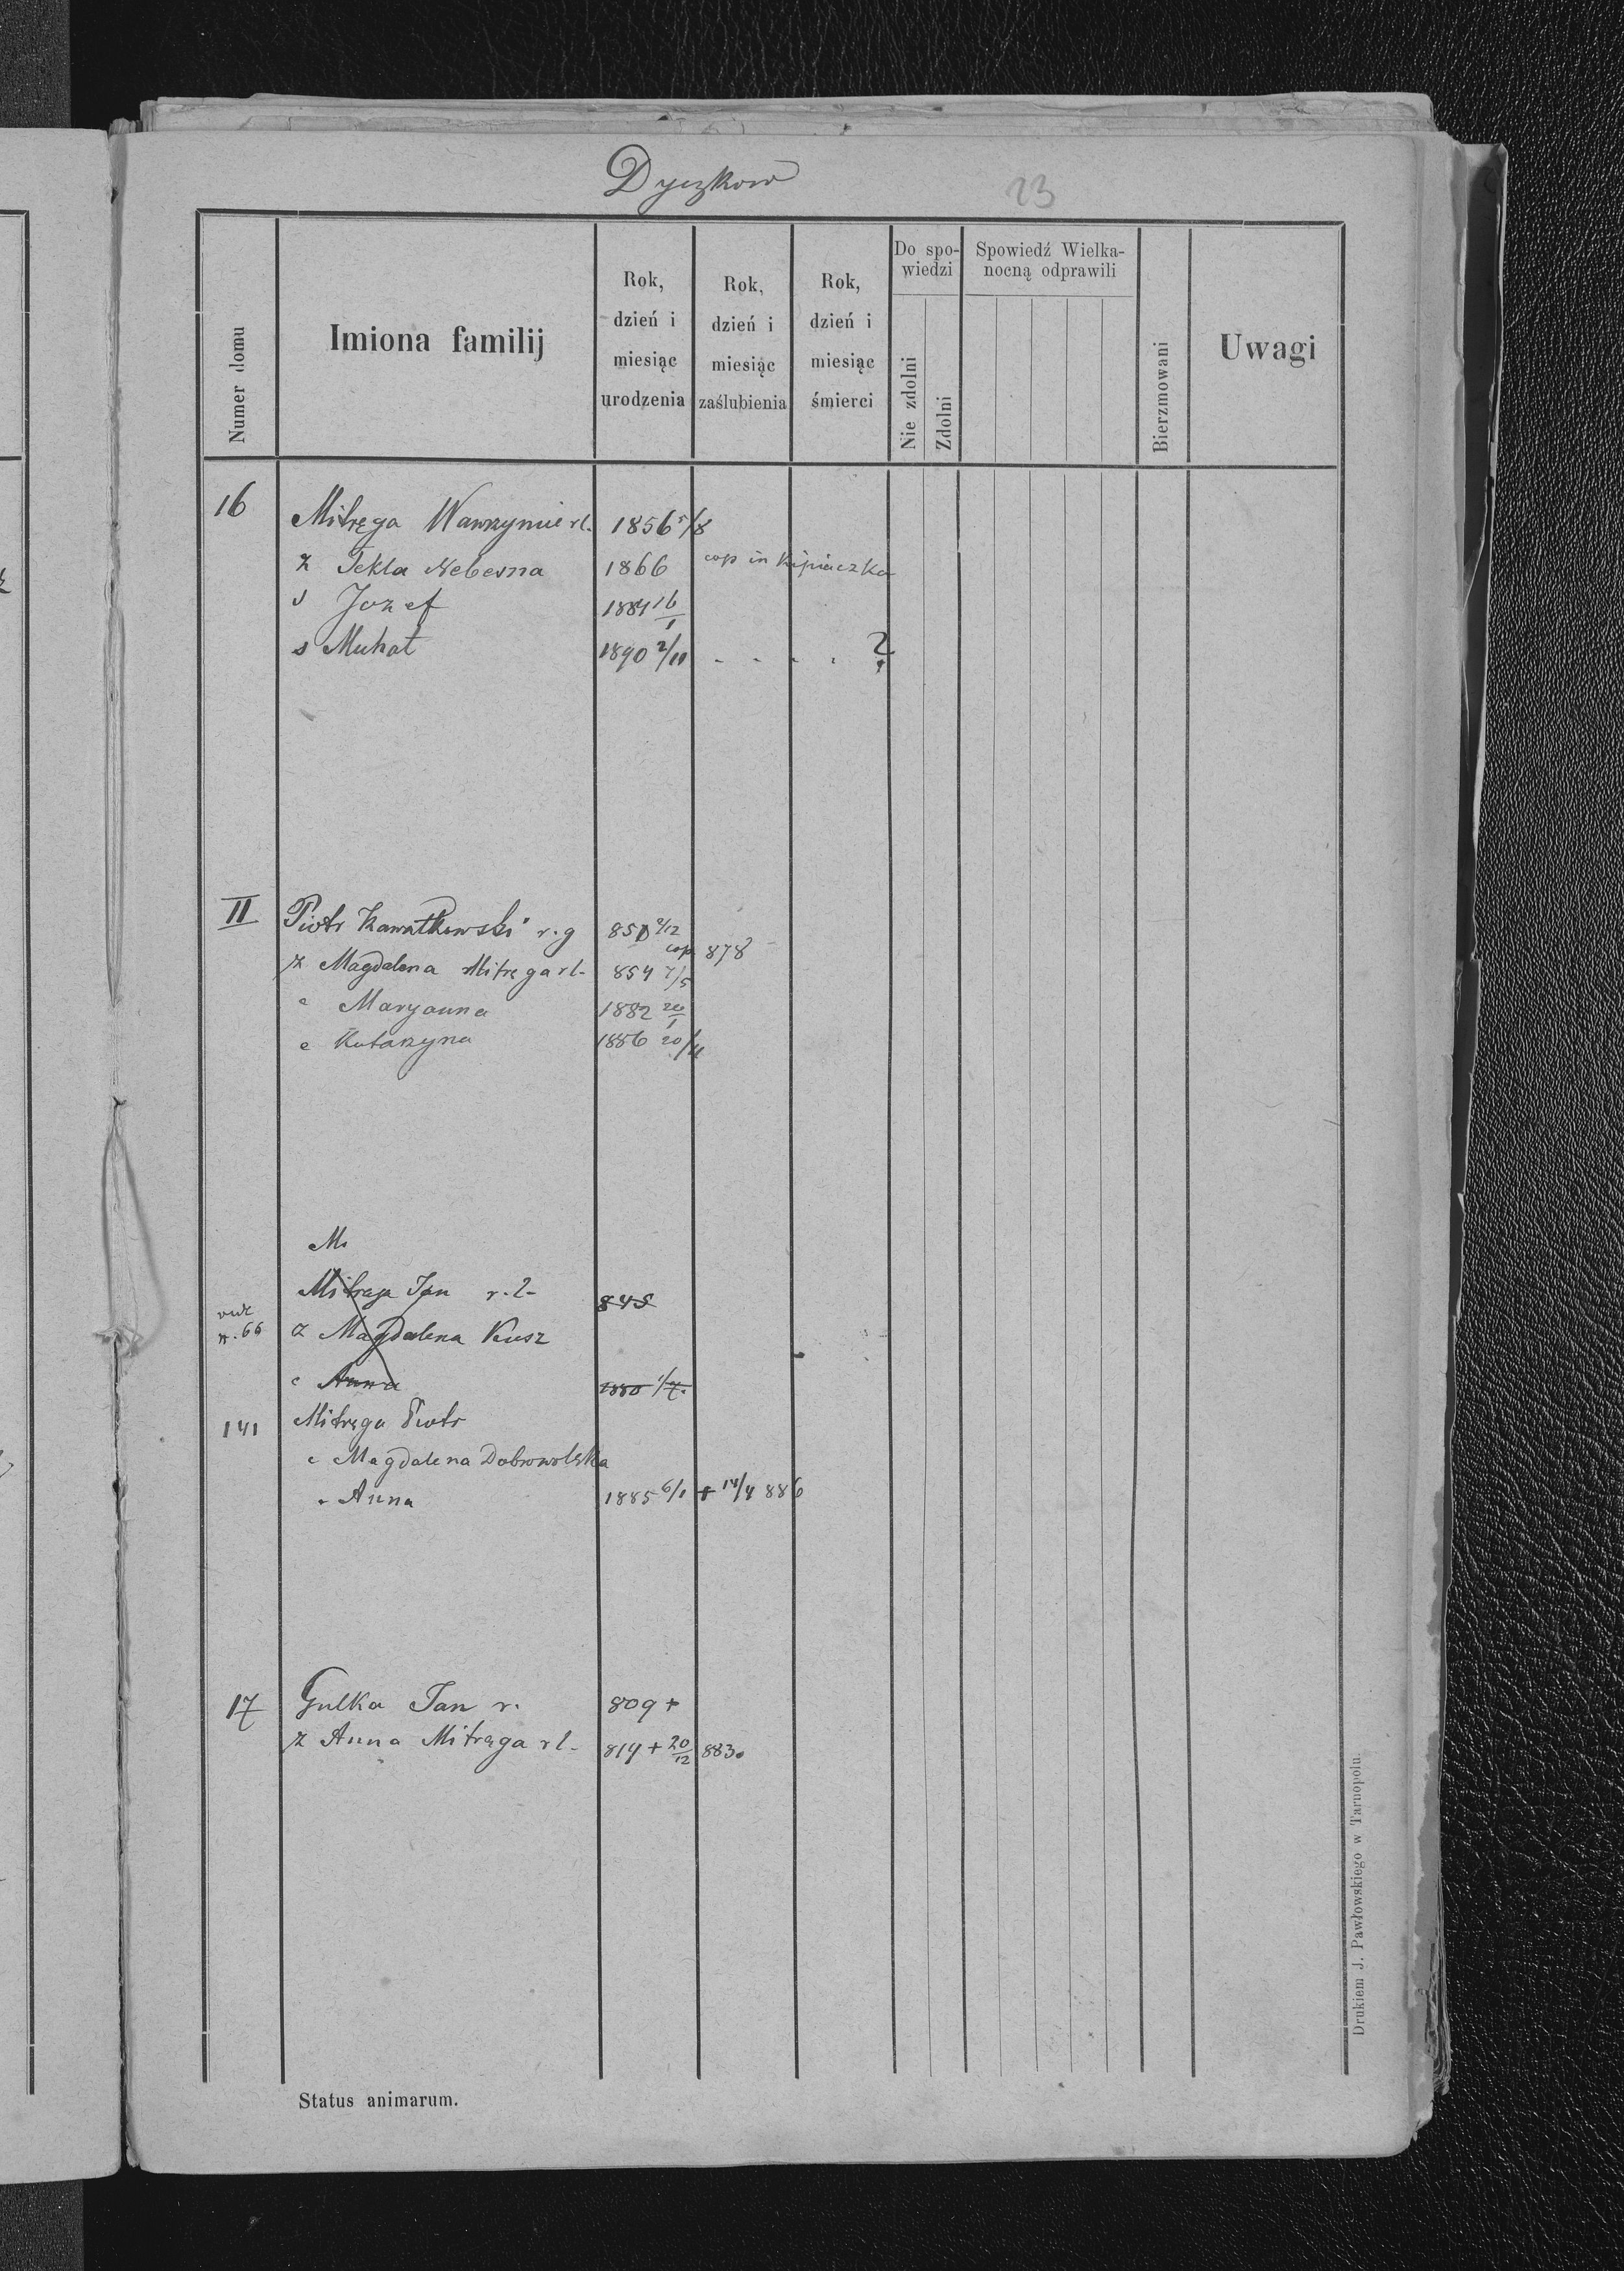 Dyczkow
23
Numer domu
Imiona familij
Rok, dzień i miesiąc urodzenia
Rok, dzień i miesiąc zaślubienia
Rok, dzień i miesiąc śmierci
Do spo-
wiedzi
Nie zdolni
Zdolni
Spowiedź Wielka-
nocną odprawili
Bierzmowani
Uwagi
16 Mitręga Wawrzyniec rl. 1856 5/8
ż Tekla Nebesna 1866 cop in Kipiaczka
s Jozef 1889 16/1
s Michał 1890 2/11 - - - . ?
II Piotr r. g 850 2/12
cop 878
ż Magdalena Mitręga rl- 854 7/5
c Maryanna 1882 20/1
c Katarzyna 1886 20/11
Mi
Mitręga Jan r. l- 845
vide n. 66 ż Magdalena Kusz
c Anna 1880 1/7.
141 Mitręga Piotr
c Magdalena Dobrowolska
" Anna 1885 6/1 + 14/4 886
17 Gulka Jan r. 809 +
ż Anna Mitręga rl- 814 + 20/12 883.
Status animarum.
Drukiem J. Pawłowskiego w Tarnopolu.